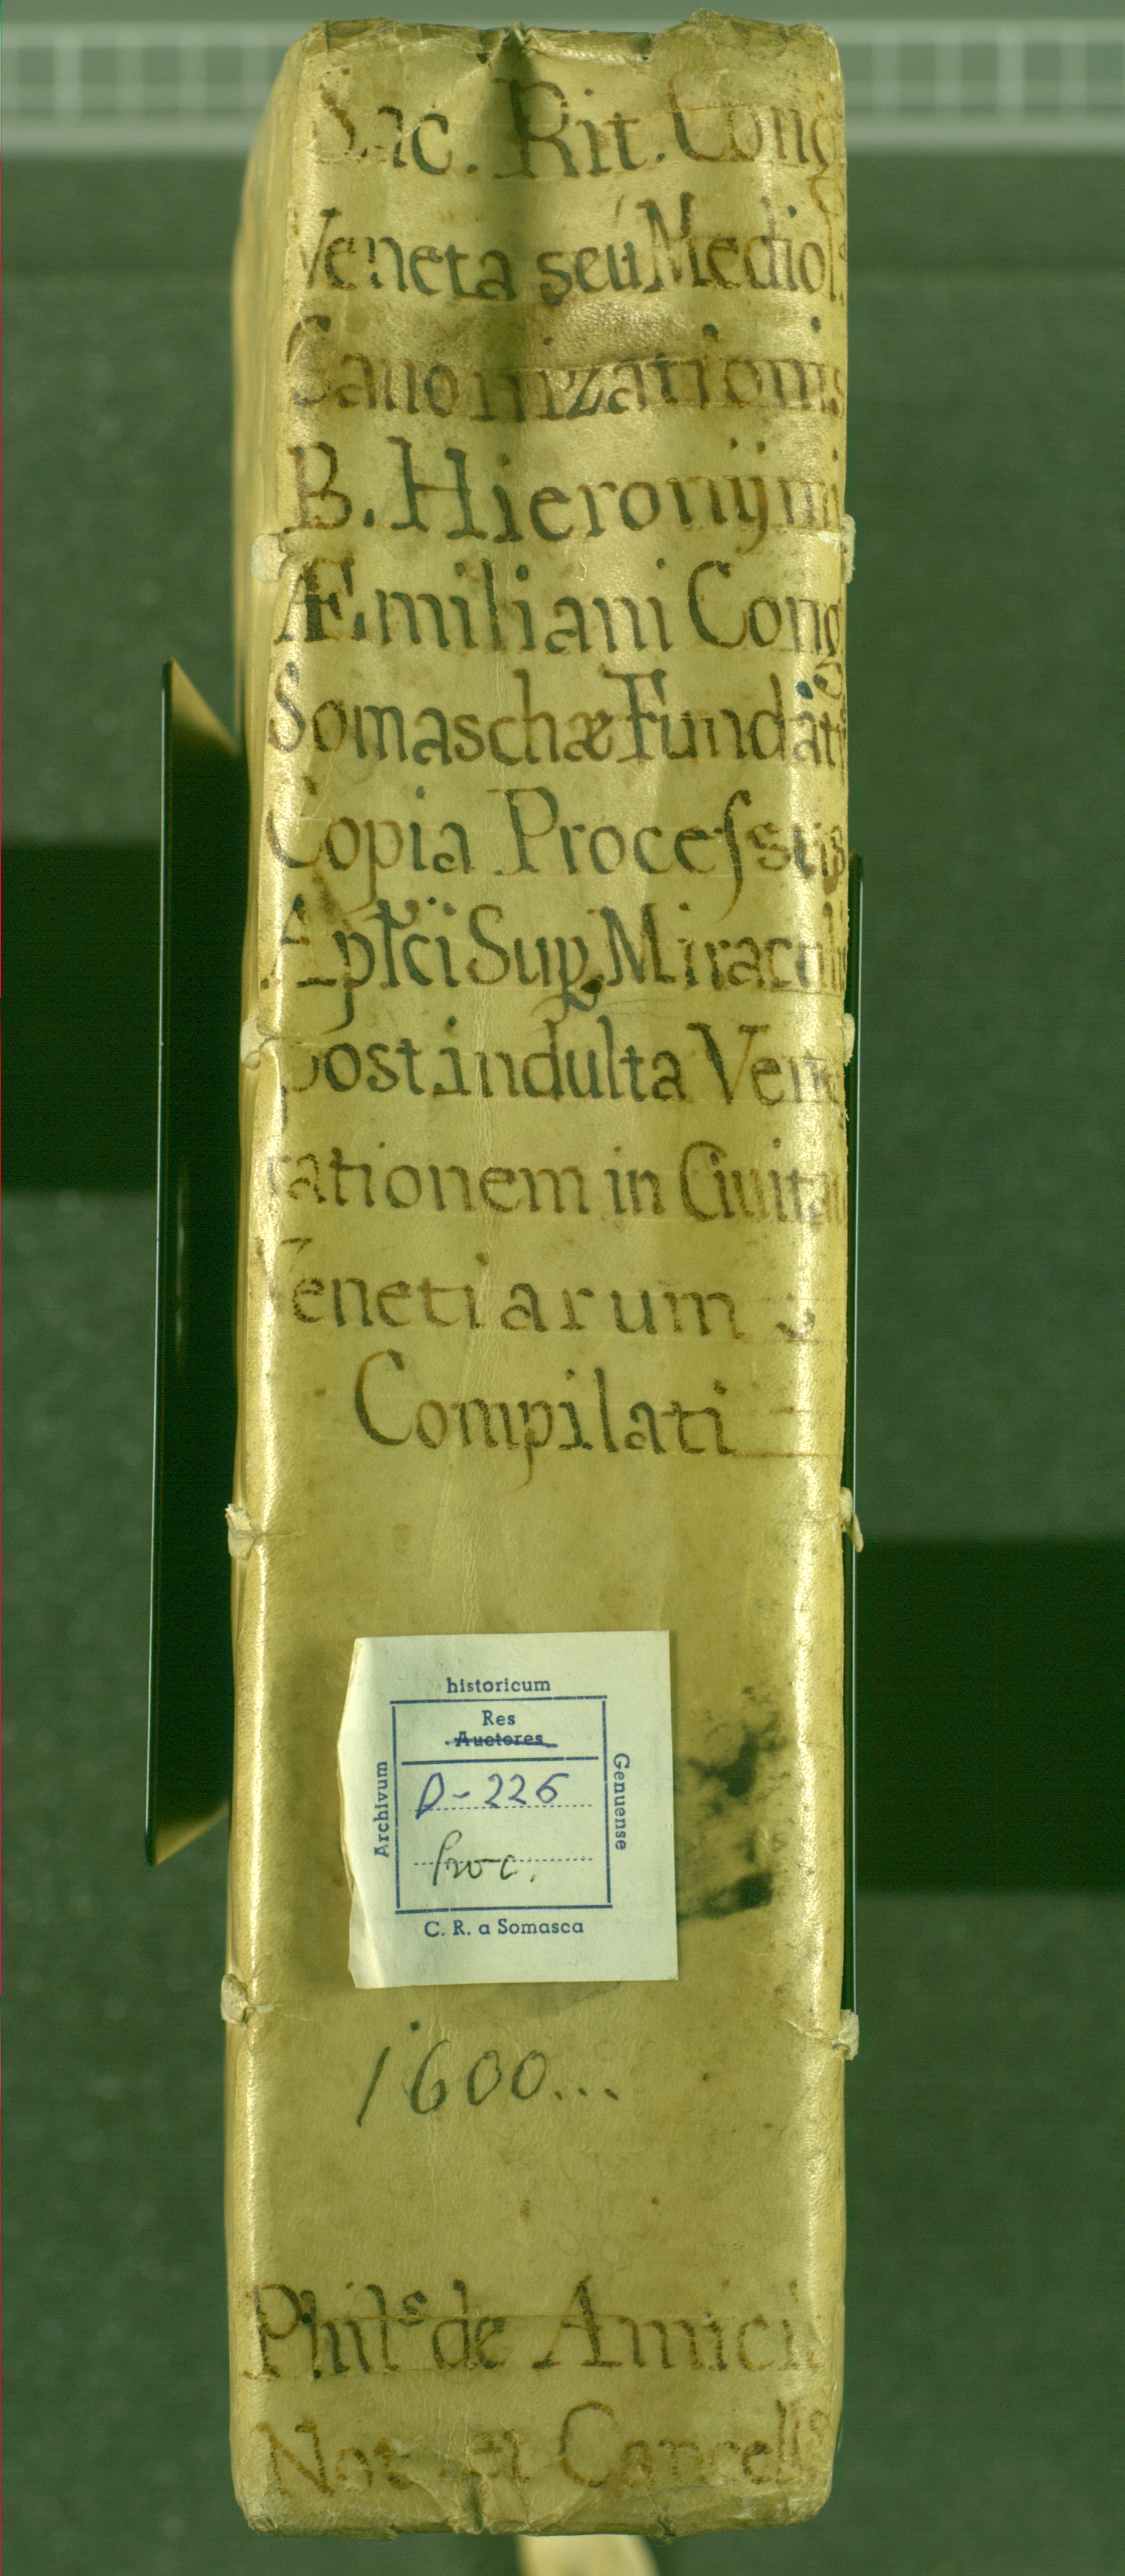 Sac. Rit. Cong
Veneta seu Mediol.
Canonizationis
B. Hieronÿmi
Æmiliani Cong
Somaschæ Fundatr
Copia Processus
Aptci Sup. Miraculi
post indulta Vene
rationem in Ciuitat
Venetiarum
Compilati
historicum
Res
Auctores
Archivum
Genuense
D-226
Proc.
C. R. a Somasca
1600...
Phils de Amicis
Not et Cancells